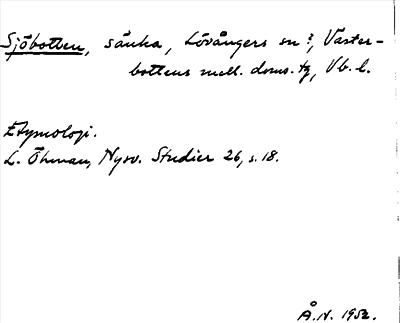 Sjöbotten, sänka, Lövångers sn?, Väster-
bottens mell. doms. tg, Vb. l.
Etymologi.
L. Öhman, Nysv. Studier 26, s. 18.
Å. N. 1952.